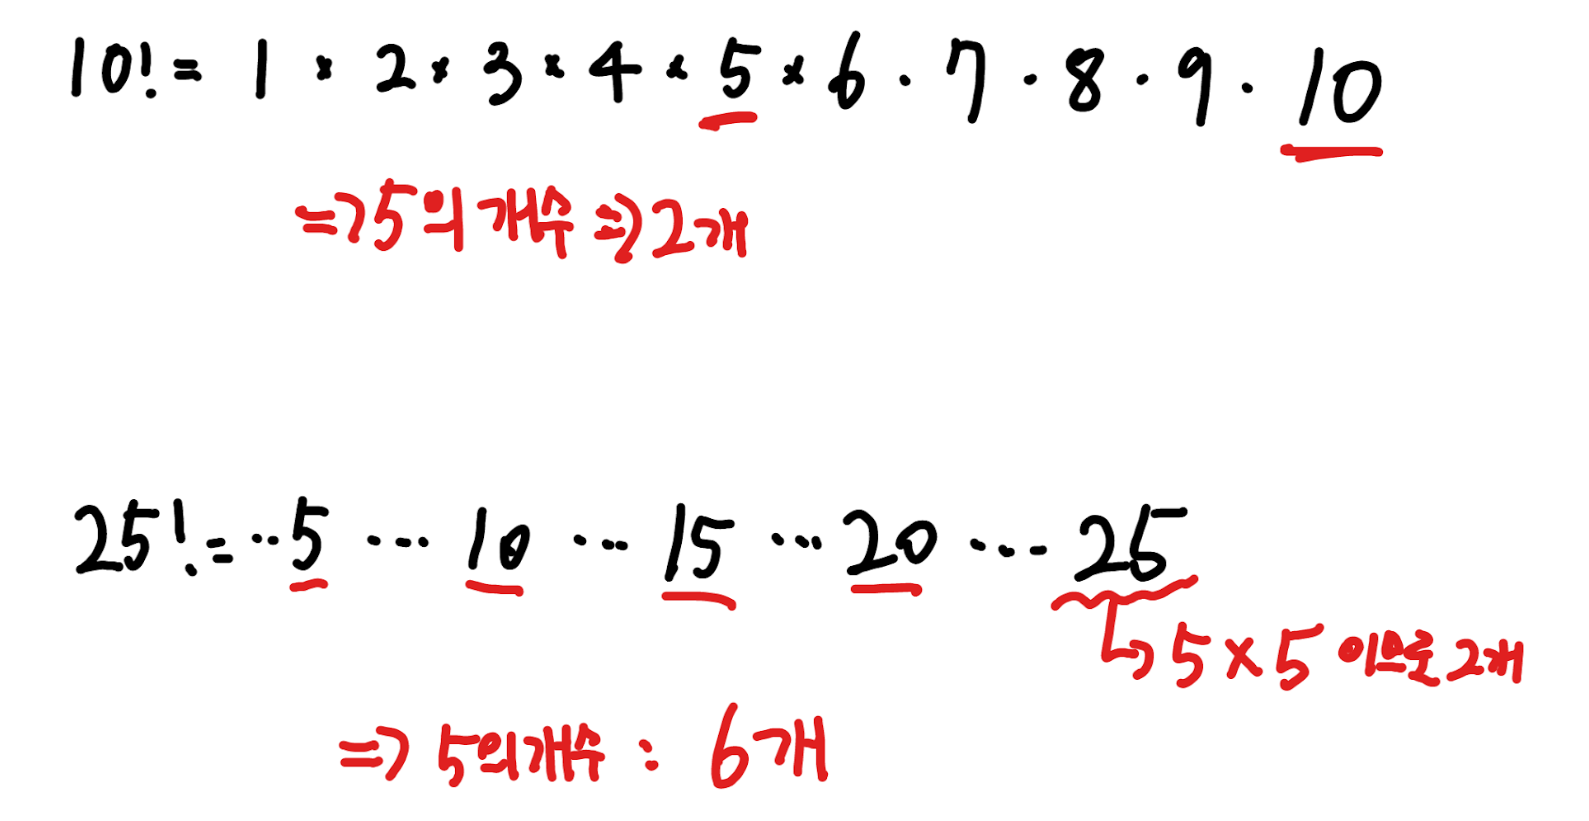 10! = 1 × 2 × 3 × 4 × 5 × 6 · 7 · 8 · 9 · 10
=> 5의 개수 => 2개
25! = ·· 5 ··· 10 ··· 15 ··· 20 ··· 25
↳ 5 × 5 이므로 2개
=> 5의 개수 : 6개